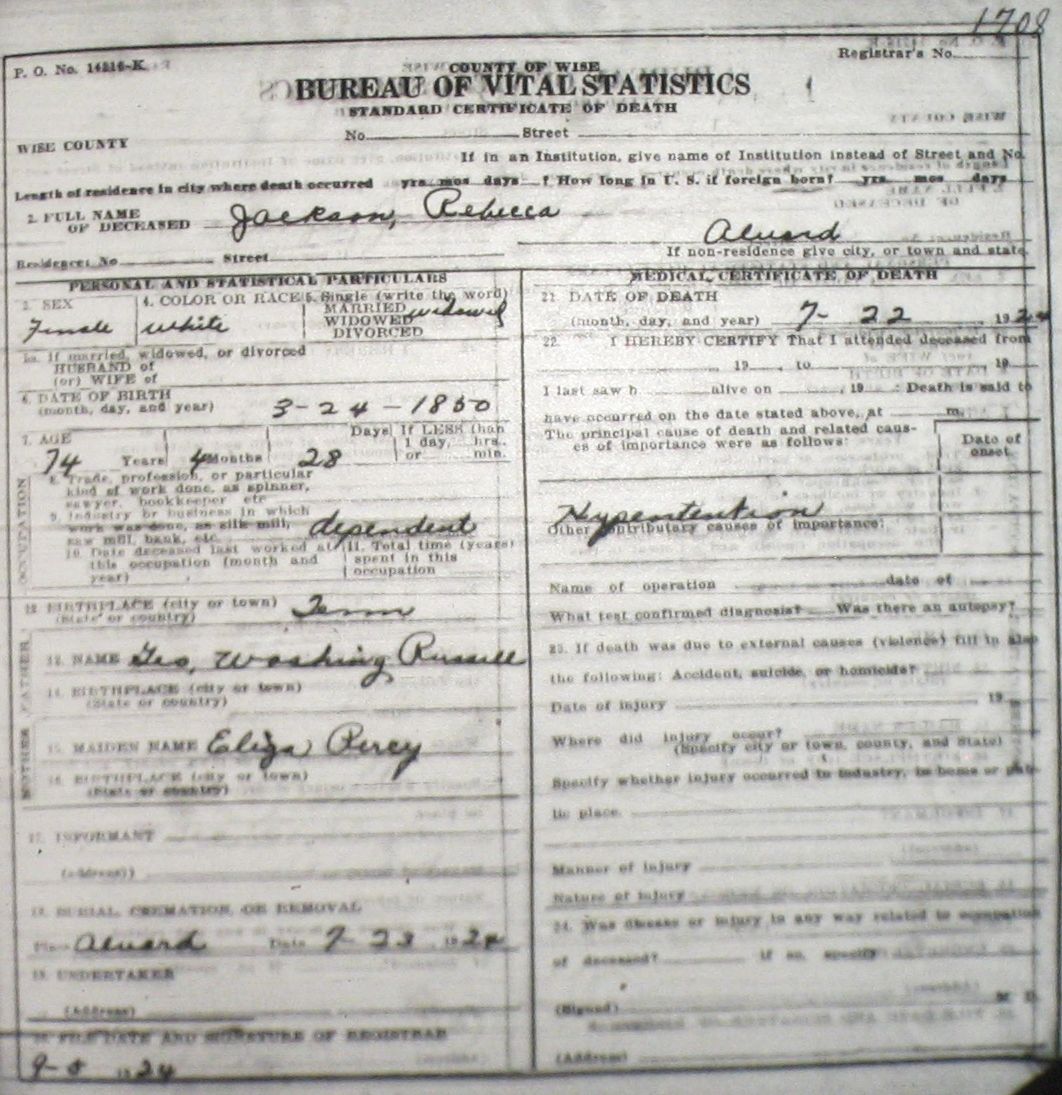 1708
Registrar's No.
P. O. No. 14216-K
COUNTY OF WISE
BUREAU OF VITAL STATISTICS
STANDARD CERTIFICATE OF DEATH
No. Street
WISE COUNTY
If in an Institution, give name of Institution instead of Street and No.
Length of residence in city where death occurred yrs. mos days ? How long in U. S. if foreign born? yrs mos days
2. FULL NAME OF DECEASED Jackson, Rebecca
Alvord
Residence: No Street
If non-residence give city, or town and state.
PERSONAL AND STATISTICAL PARTICULARS
3. SEX Female
4. COLOR OR RACE White
5. Single (write the word) MARRIED WIDOWED DIVORCED widowed
5a. If married, widowed, or divorced
HUSBAND of
(or) WIFE of
6. DATE OF BIRTH
(month, day, and year) 3-24-1850
7. AGE 74 Years 4 Months 28 Days If LESS than 1 day, hrs. or min.
OCCUPATION
8. Trade, profession, or particular
kind of work done, as spinner,
sawyer, bookkeeper etc
9. Industry or business in which
work was done, as silk mill,
saw mill, bank, etc. dependent
10. Date deceased last worked at
this occupation (month and
year)
11. Total time (years)
spent in this
occupation
12. BIRTHPLACE (city or town) Tenn
(State or country)
FATHER
13. NAME Geo, Washing Russell
14. BIRTHPLACE (city or town)
(State or country)
MOTHER
15. MAIDEN NAME Eliza Percy
16. BIRTHPLACE (city or town)
(State or country)
17. INFORMANT
(address)
18. BURIAL, CREMATION, OR REMOVAL
Place Alvord Date 7-23 1924
19. UNDERTAKER
(Address)
20. FILE DATE AND SIGNATURE OF REGISTRAR
9-8 1924
MEDICAL CERTIFICATE OF DEATH
21. DATE OF DEATH
(month, day, and year) 7-22 1924
22. I HEREBY CERTIFY That I attended deceased from
19 , to 19
I last saw h alive on , 19 : Death is said to
have occurred on the date stated above, at m.
The principal cause of death and related causes of importance were as follows:
Date of onset
Hypertention
Other contributary causes of importance:
Name of operation date of
What test confirmed diagnosis? Was there an autopsy?
23. If death was due to external causes (violence) fill in also
the following: Accident, suicide, or homicide?
Date of injury 19
Where did injury occur?
(Specify city or town, county, and State)
Specify whether injury occurred in industry, in home or pub-
lic place.
Manner of injury
Nature of injury
24. Was disease or injury in any way related to occupation
of deceased? if so, specify
(Signed) M D
(Address)